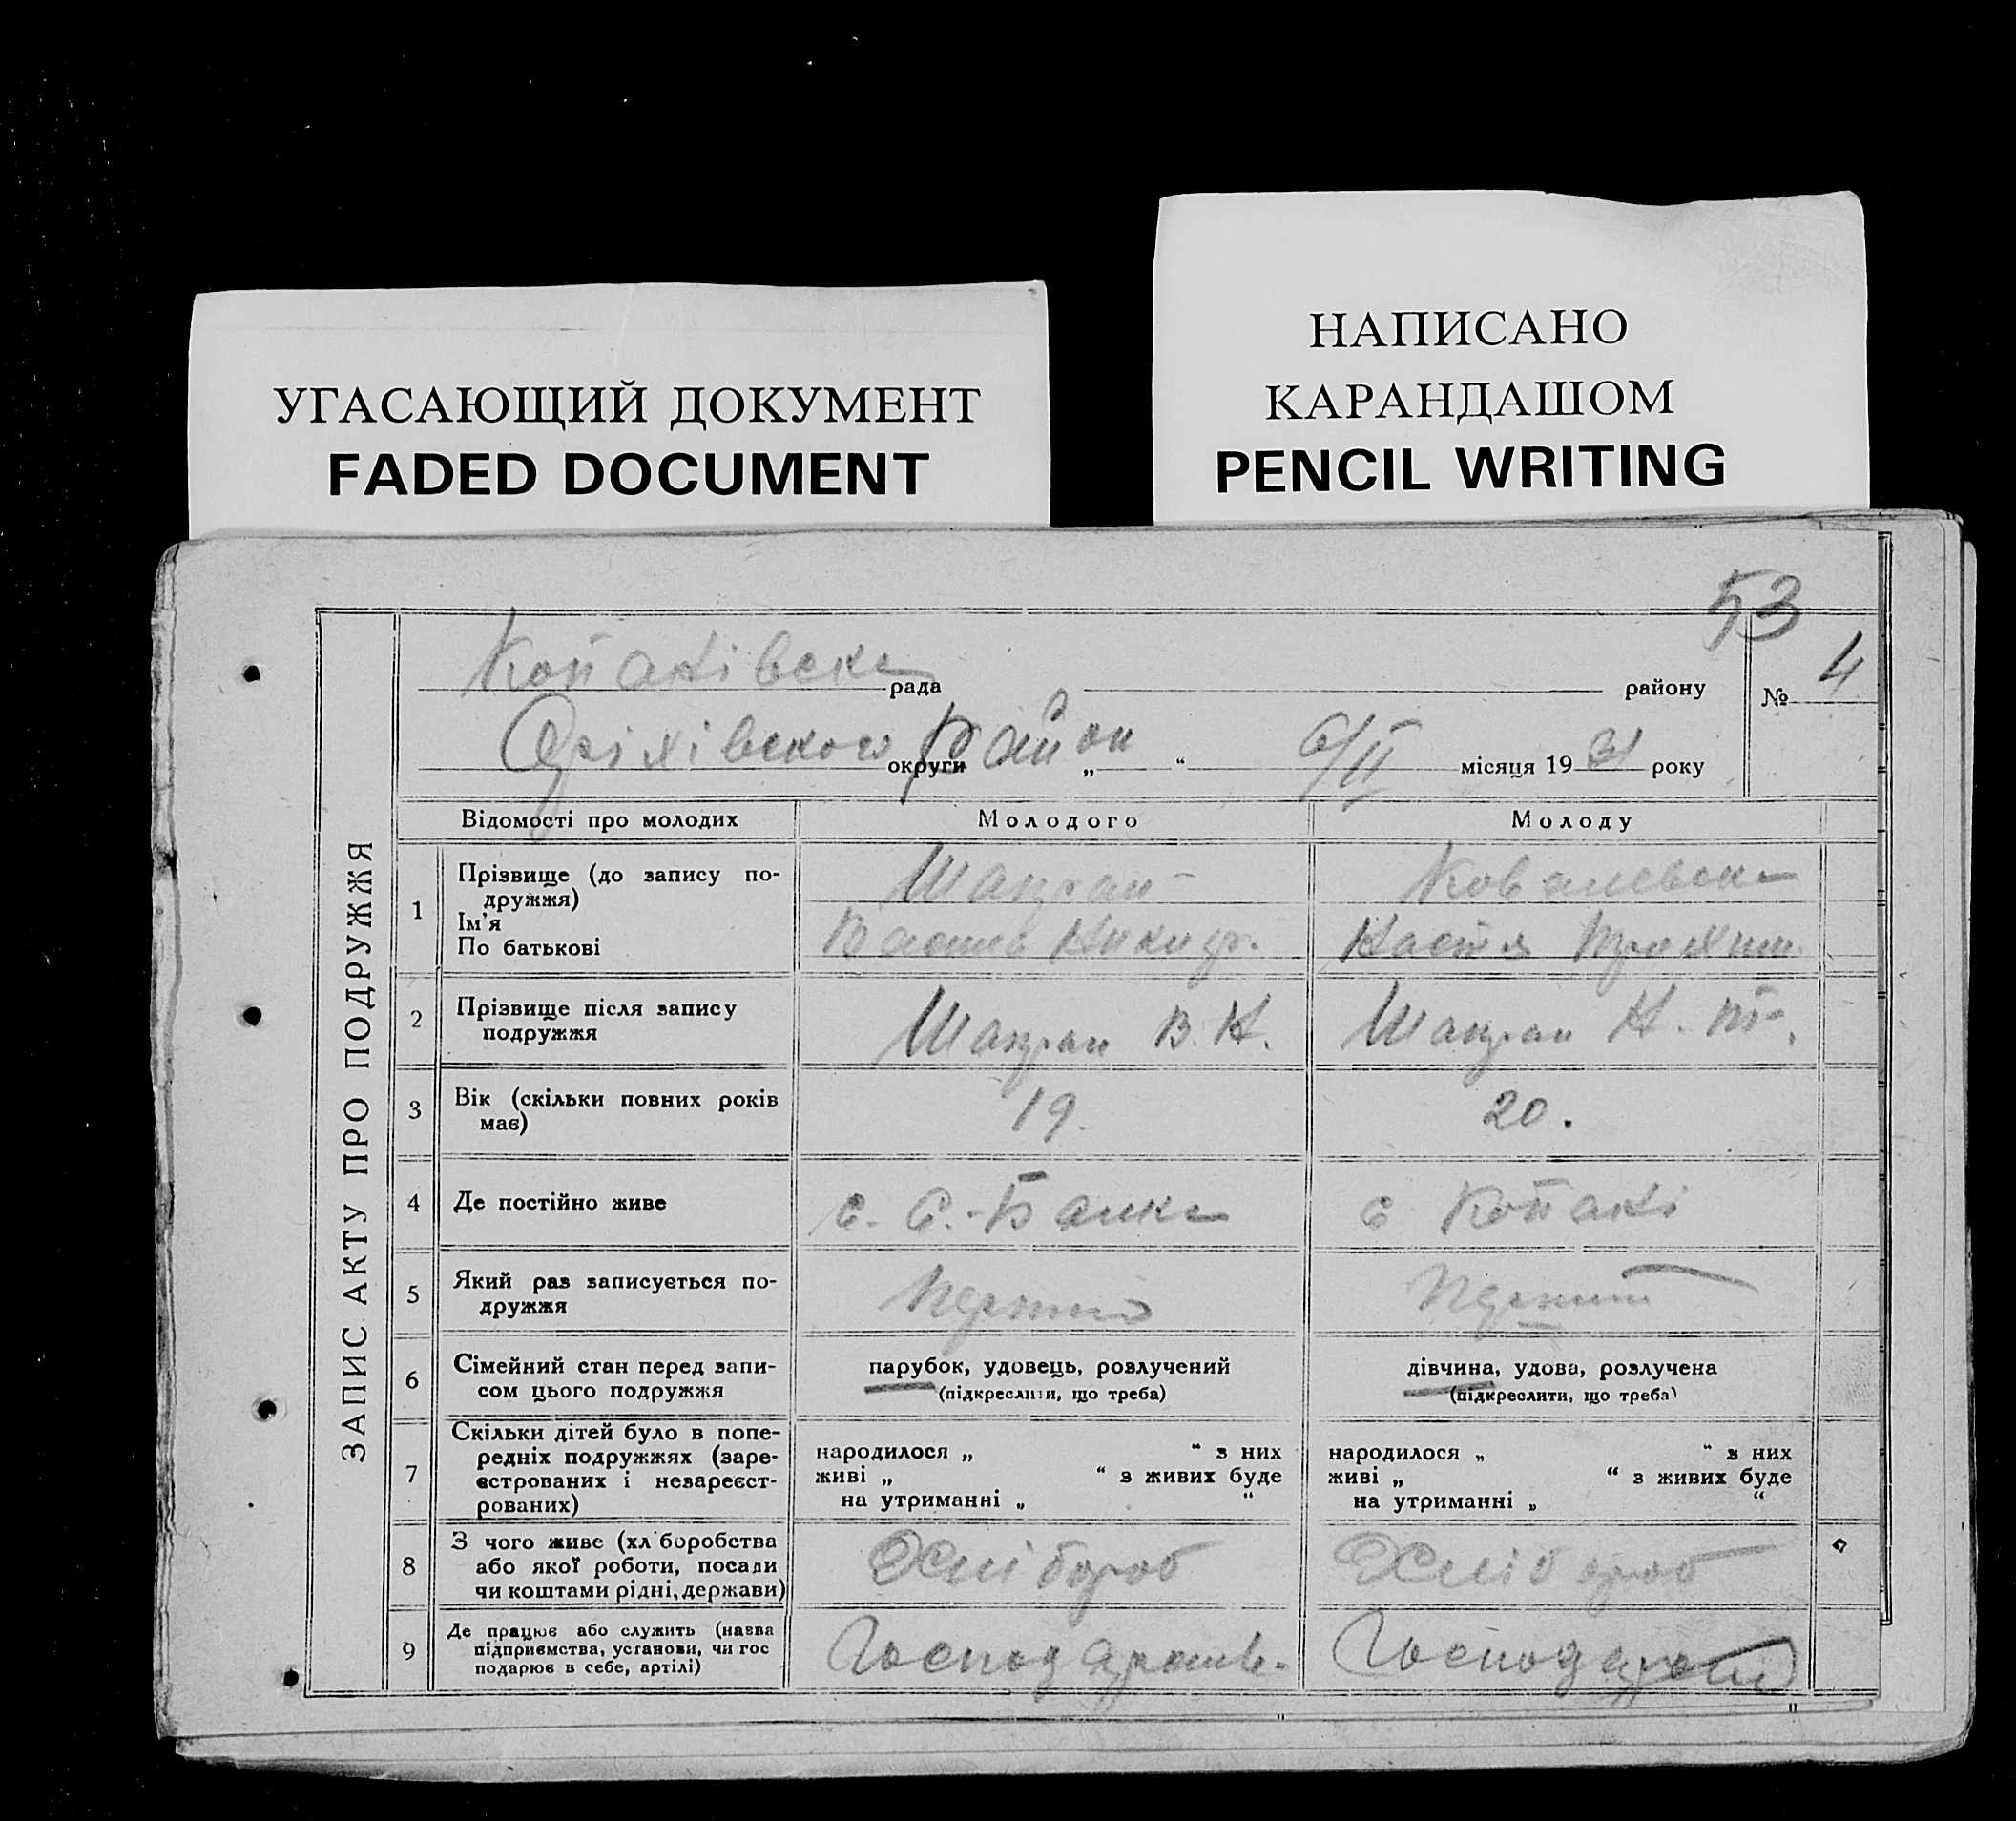 УГАСАЮЩИЙ ДОКУМЕНТ
FADED DOCUMENT
НАПИСАНО
КАРАНДАШОМ
PENCIL WRITING
53
ЗАПИС АКТУ ПРО ПОДРУЖЖЯ
Копанівська рада району
№ 4
Оріхівского округи Район „ “ 6/II місяця 1931 року
Відомості про молодих Молодого Молоду
1 Прізвище (до запису по-
дружжя)
Ім'я
По батькові
Шапран Ковалевска
Василь Никиф. Настя Трохим.
2 Прізвище після запису
подружжя
Шапран В. Н. Шапран Н. Тр.
3 Вік (скільки повних років
має)
19. 20.
4 Де постійно живе с. С.-Балка с Копані
5 Який раз записується по-
дружжя
Перший Перший
6 Сімейний стан перед запи-
сом цього подружжя
парубок, удовець, розлучений
(підкреслити, що треба)
дівчина, удова, розлучена
(підкреслити, що треба)
7 Скільки дітей було в попе-
редніх подружжях (заре-
єстрованих і незареєст-
рованих)
народилося „ “ з них
живі „ “ з живих буде
на утриманні „ “
народилося „ “ з них
живі „ “ з живих буде
на утриманні „ “
8 З чого живе (хл боробства
або якої роботи, посади
чи коштами рідні, держави)
Хлібороб Хлібороб
9 Де працює або служить (назва
підприємства, установи, чи гос
подарює в себе, артілі)
Господарств.